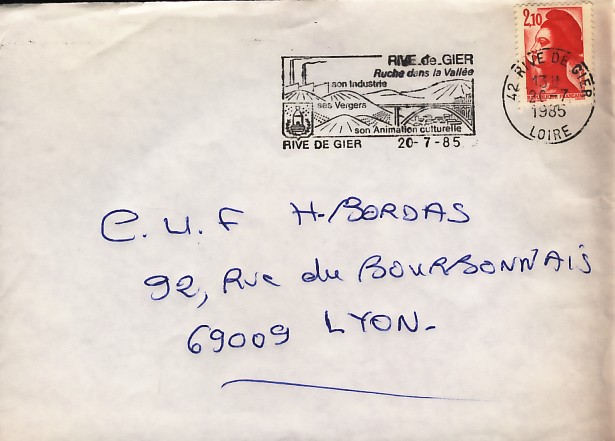 RIVE-de-GIER
Ruche dans la Vallée
son Industrie
ses Vergers
son Animation culturelle
RIVE DE GIER 20-7-85
2,10
42 RIVE DE GIER
1985
LOIRE
C.U.F H-BORDAS
92, Rue du BOURBONNAIS
69009 LYON-